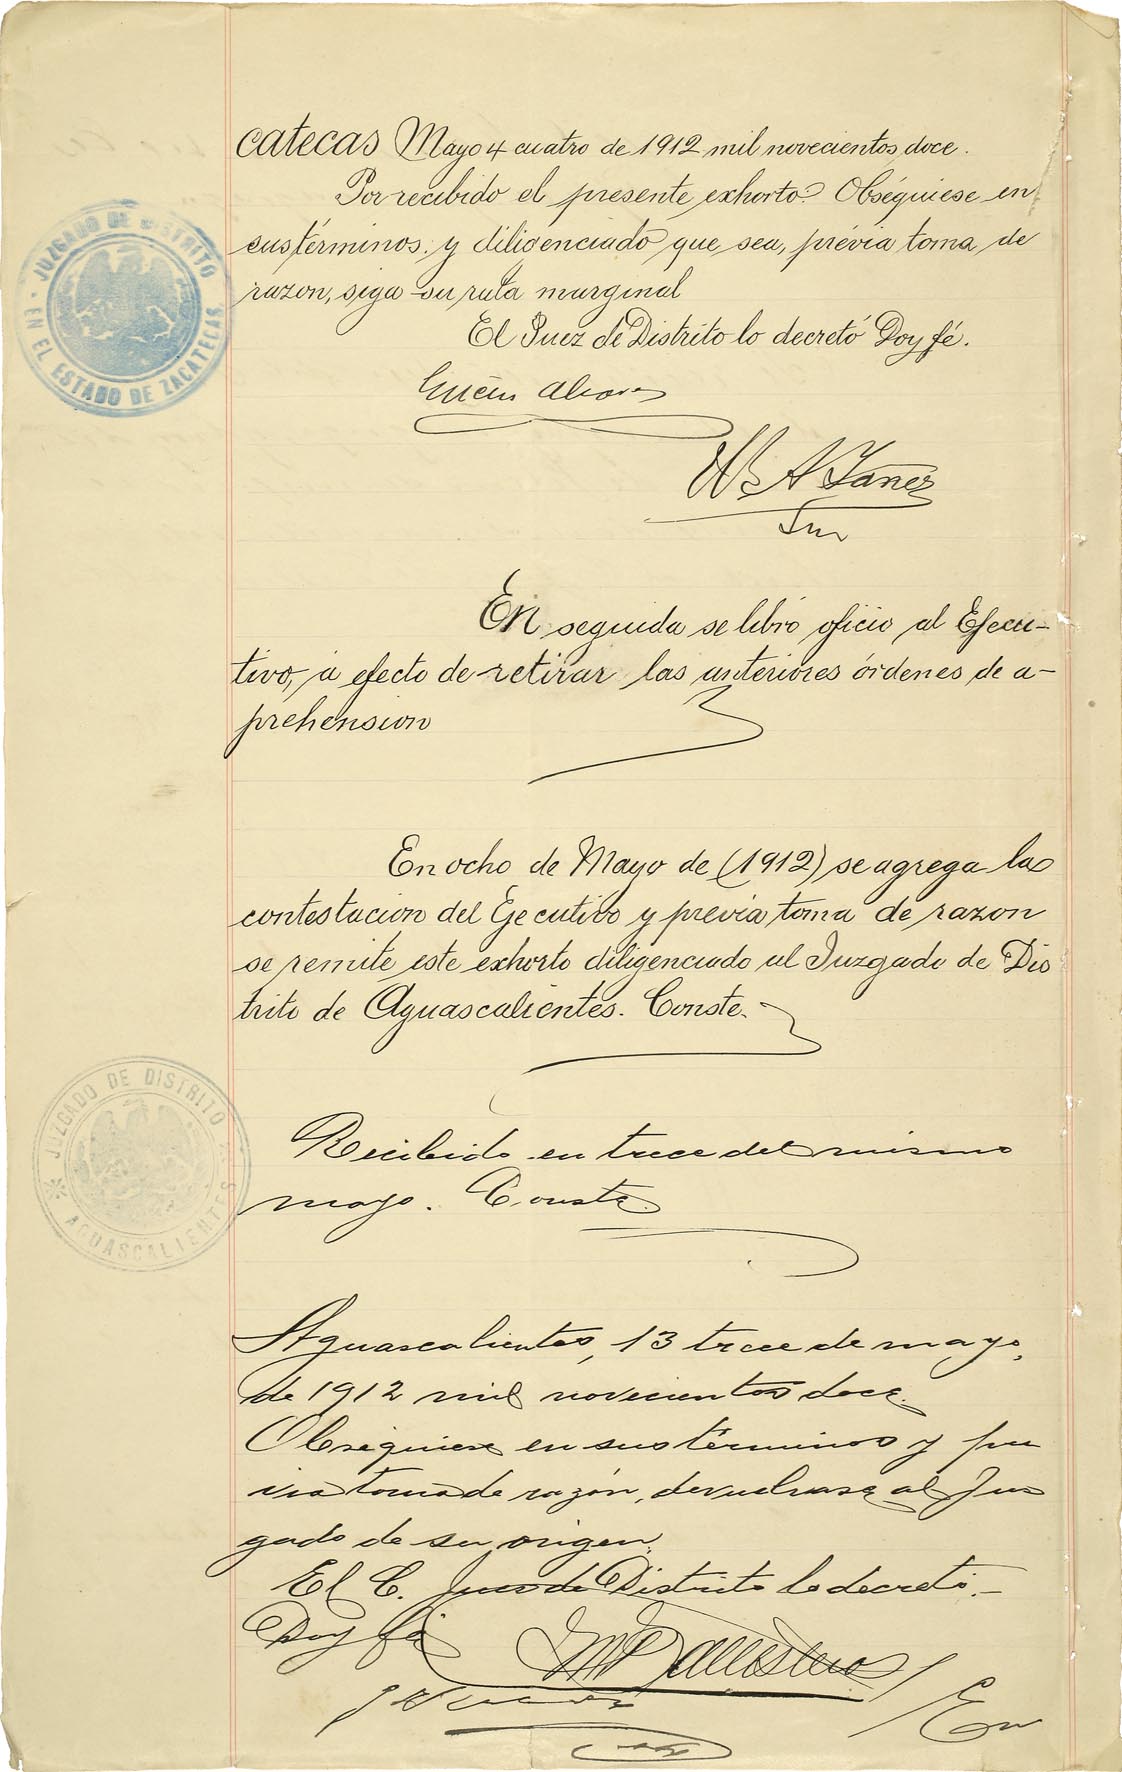 catecas Mayo 4 cuatro de 1912 mil novecientos doce.
Por recibido el presente exhorto. Obséquiese en
sus términos, y diligenciado que sea, prévia toma de
razon, siga su ruta marginal
El Juez de Distrito lo decretó Doy fé.
JUZGADO DE DISTRITO
EN EL ESTADO DE ZACATECAS
Yañez
En seguida se libró oficio al Ejecu-
tivo, á efecto de retirar las anteriores órdenes de a-
prehension
En ocho de Mayo de (1912) se agrega la
contestacion del Ejecutivo y prévia toma de razon
se remite este exhorto diligenciado al Juzgado de Dis
trito de Aguascalientes. Conste.
JUZGADO DE DISTRITO
AGUASCALIENTES
Recibido en trece del mismo
mayo. Conste
Aguascalientes, 13 trece de mayo
de 1912 mil novecientos doce.
Obsequiese en sus términos y pre
via toma de razón, devuelvase al Juz
gado de su origen.
El C. Juez de Distrito lo decretó.-
Doy fé
En